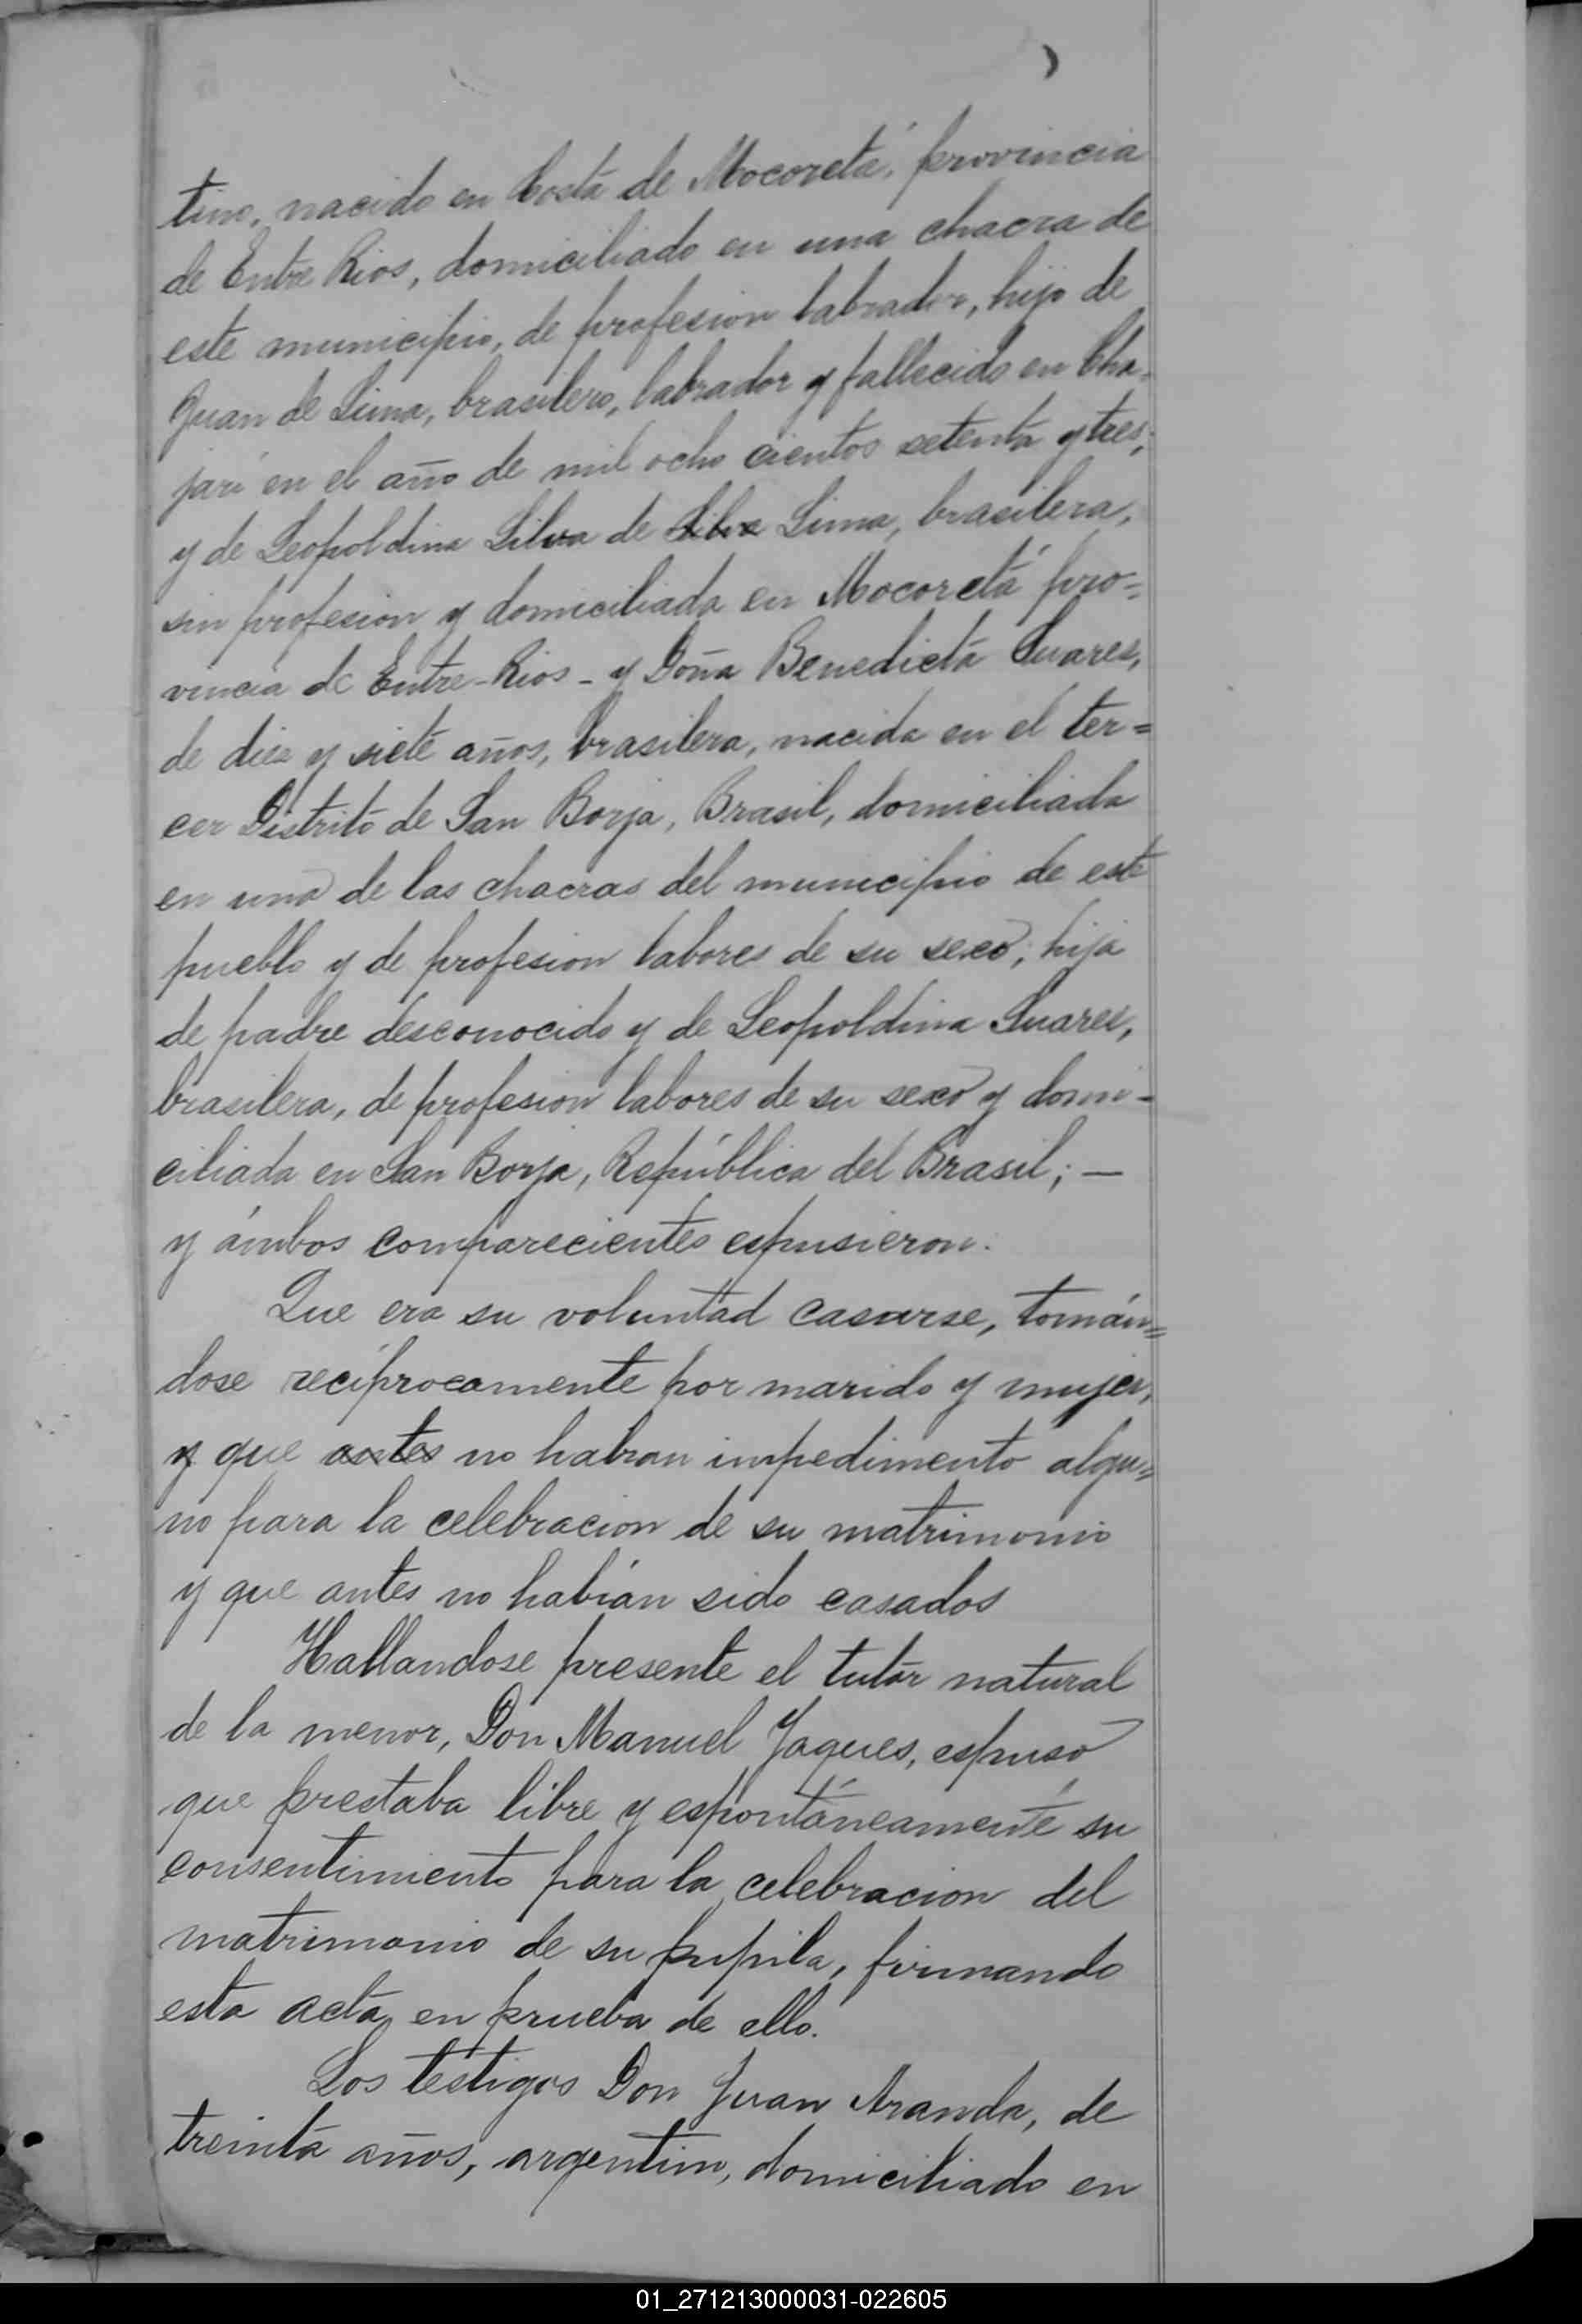 tino, nacido en Costa de Mocoretá, provincia
de Entre Rios, domiciliado en una chacra de
este municipio, de profesion labrador, hijo de
Juan de Lima, brasilero, labrador y fallecido en Cha-
jarí en el año de mil ocho cientos setenta y tres;
y de Leopoldina Silva de ~~Silva~~ Lima, brasilera,
sin profesion y domiciliada en Mocoretá pro=
vincia de Entre-Rios - y Doña Benedicta Suares,
de diez y siete años, brasilera, nacida en el ter=
cer Distrito de San Borja, Brasil, domiciliada
en una de las chacras del municipio de este
pueblo y de profesion labores de su sexo; hija
de padre desconocido y de Leopoldina Suares,
brasilera, de profesion labores de su sexo y domi-
ciliada en San Borja, República del Brasil; —
y ámbos comparecientes espusieron:
Que era su voluntad casarse, tomán=
dose recíprocamente por marido y mujer,
y que ~~antes~~ no habian impedimento algu=
no para la celebracion de su matrimonio
y que antes no habían sido casados
Hallandose presente el tutor natural
de la menor, Don Manuel Jaques, espuso
que prestaba libre y espontáneamente su
consentimiento para la celebracion del
matrimonio de su pupila, firmando
esta acta en prueba de ello.
Los testigos Don Juan Aranda, de
treinta años, argentino, domiciliado en
01_271213000031-022605